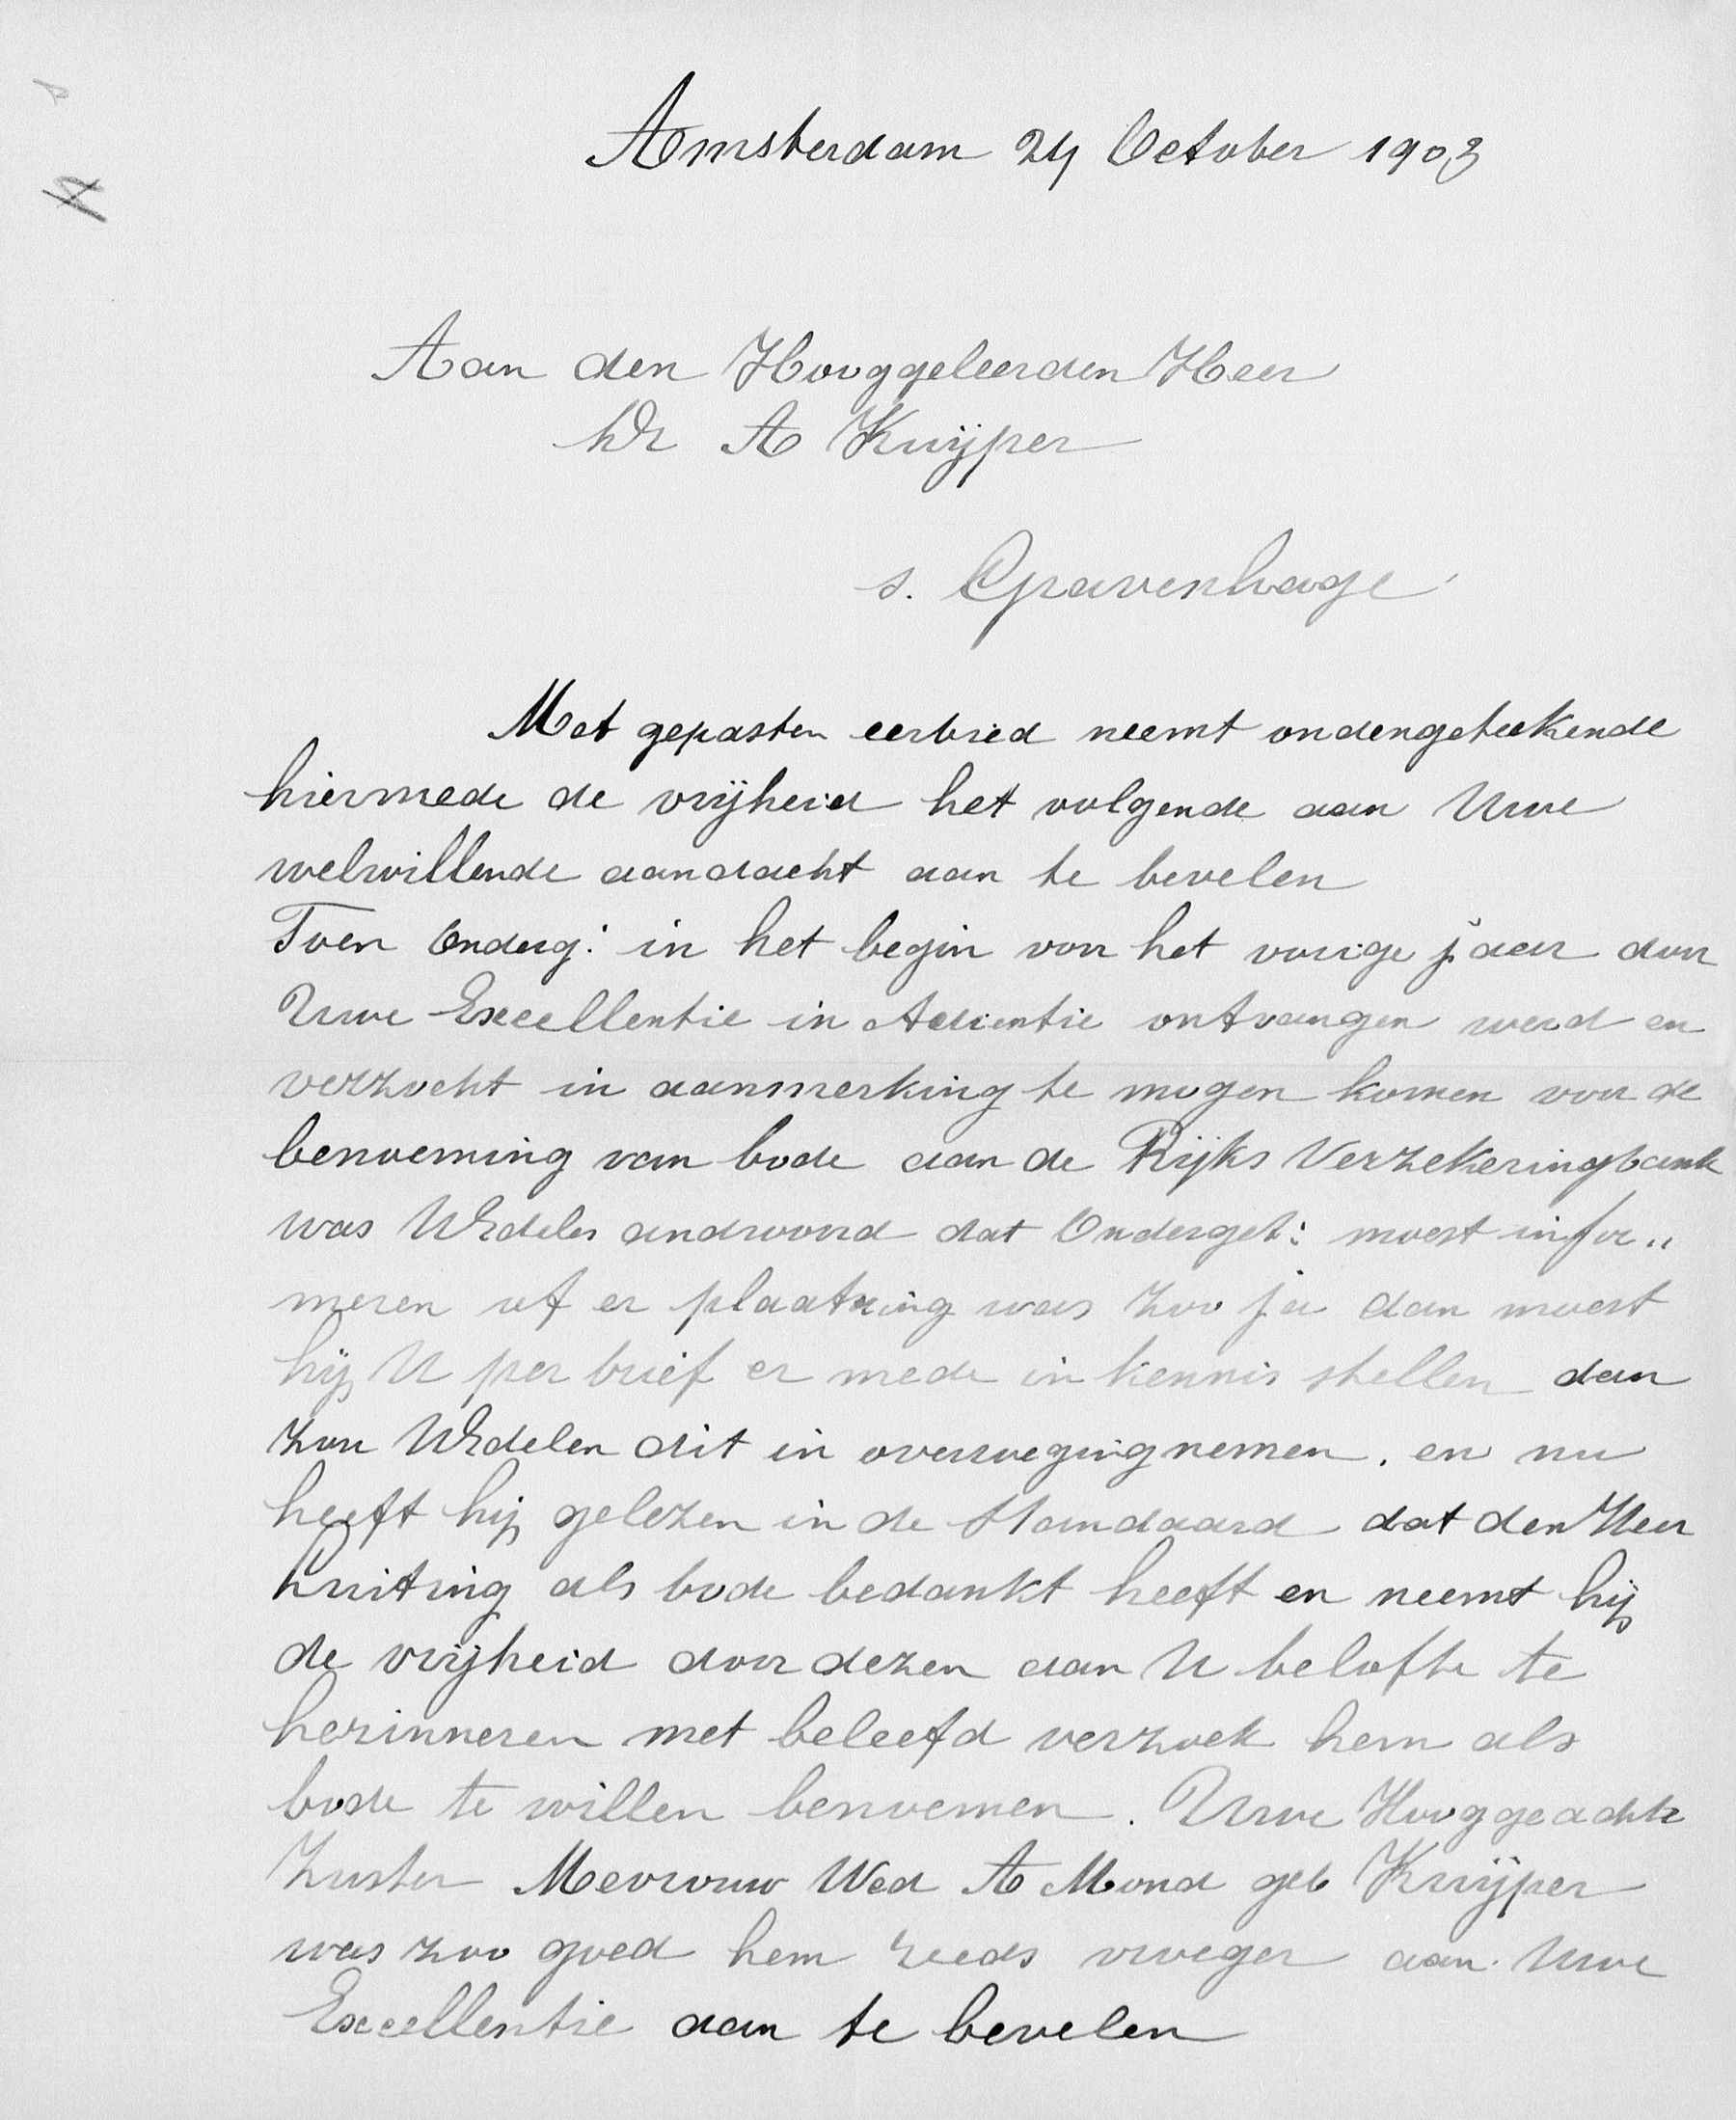 Amsterdam 24 October 1903
Aan den Hooggeleerden Heer
Dr A Kuijper
s. Gravenhage
Met gepasten eerbied neemt ondengeteekende
hiermede de vrijheid het volgende aan Uwe
welwillende aandacht aan te bevelen
Toen Onderg: in het begin van het vorige jaar door
Uwe Excellentie in Audientie ontvangen werd en
verzocht in aanmerking te mogen komen voor de
benoeming van bode aan de Rijks Verzekeringbank
was UEdeles andwoord dat Onderget: moest infor„
meren of er plaatsing was zoo ja dan moest
hij U per brief er mede in kennis stellen dan
zou UEdelen dit in overweging nemen. en nu
heeft hij gelezen in de Standaard dat den Heer
Kruiting als bode bedankt heeft en neemt hij
de vrijheid door dezen aan U belofte te
herinneren met beleefd verzoek hem als
bode te willen benoemen. Uwe Hooggeachte
Zuster Mevrouw Wed A Mond geb Kuijper
was zoo goed hem reeds vroeger aan Uwe
Excellentie aan te bevelen